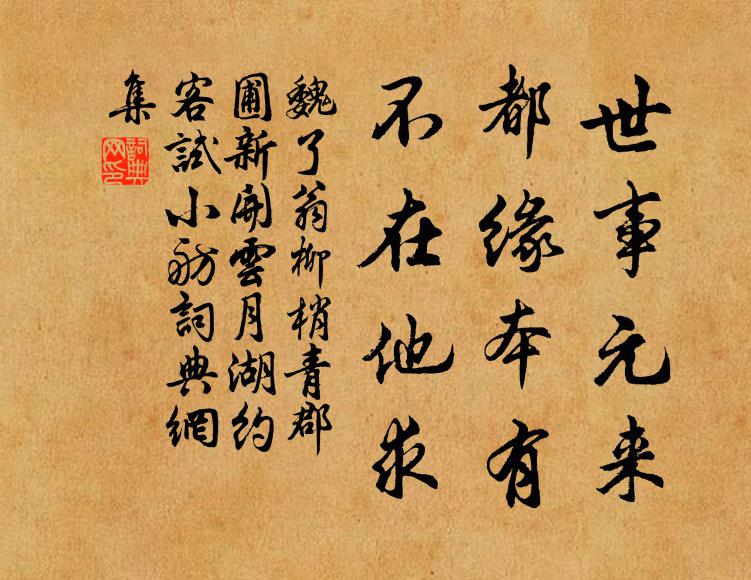 世事元来
都缘本有
不在他求
魏了翁柳梢青郡
圃新開雲月湖約
客試小舫詞典網
集
詞典
网印